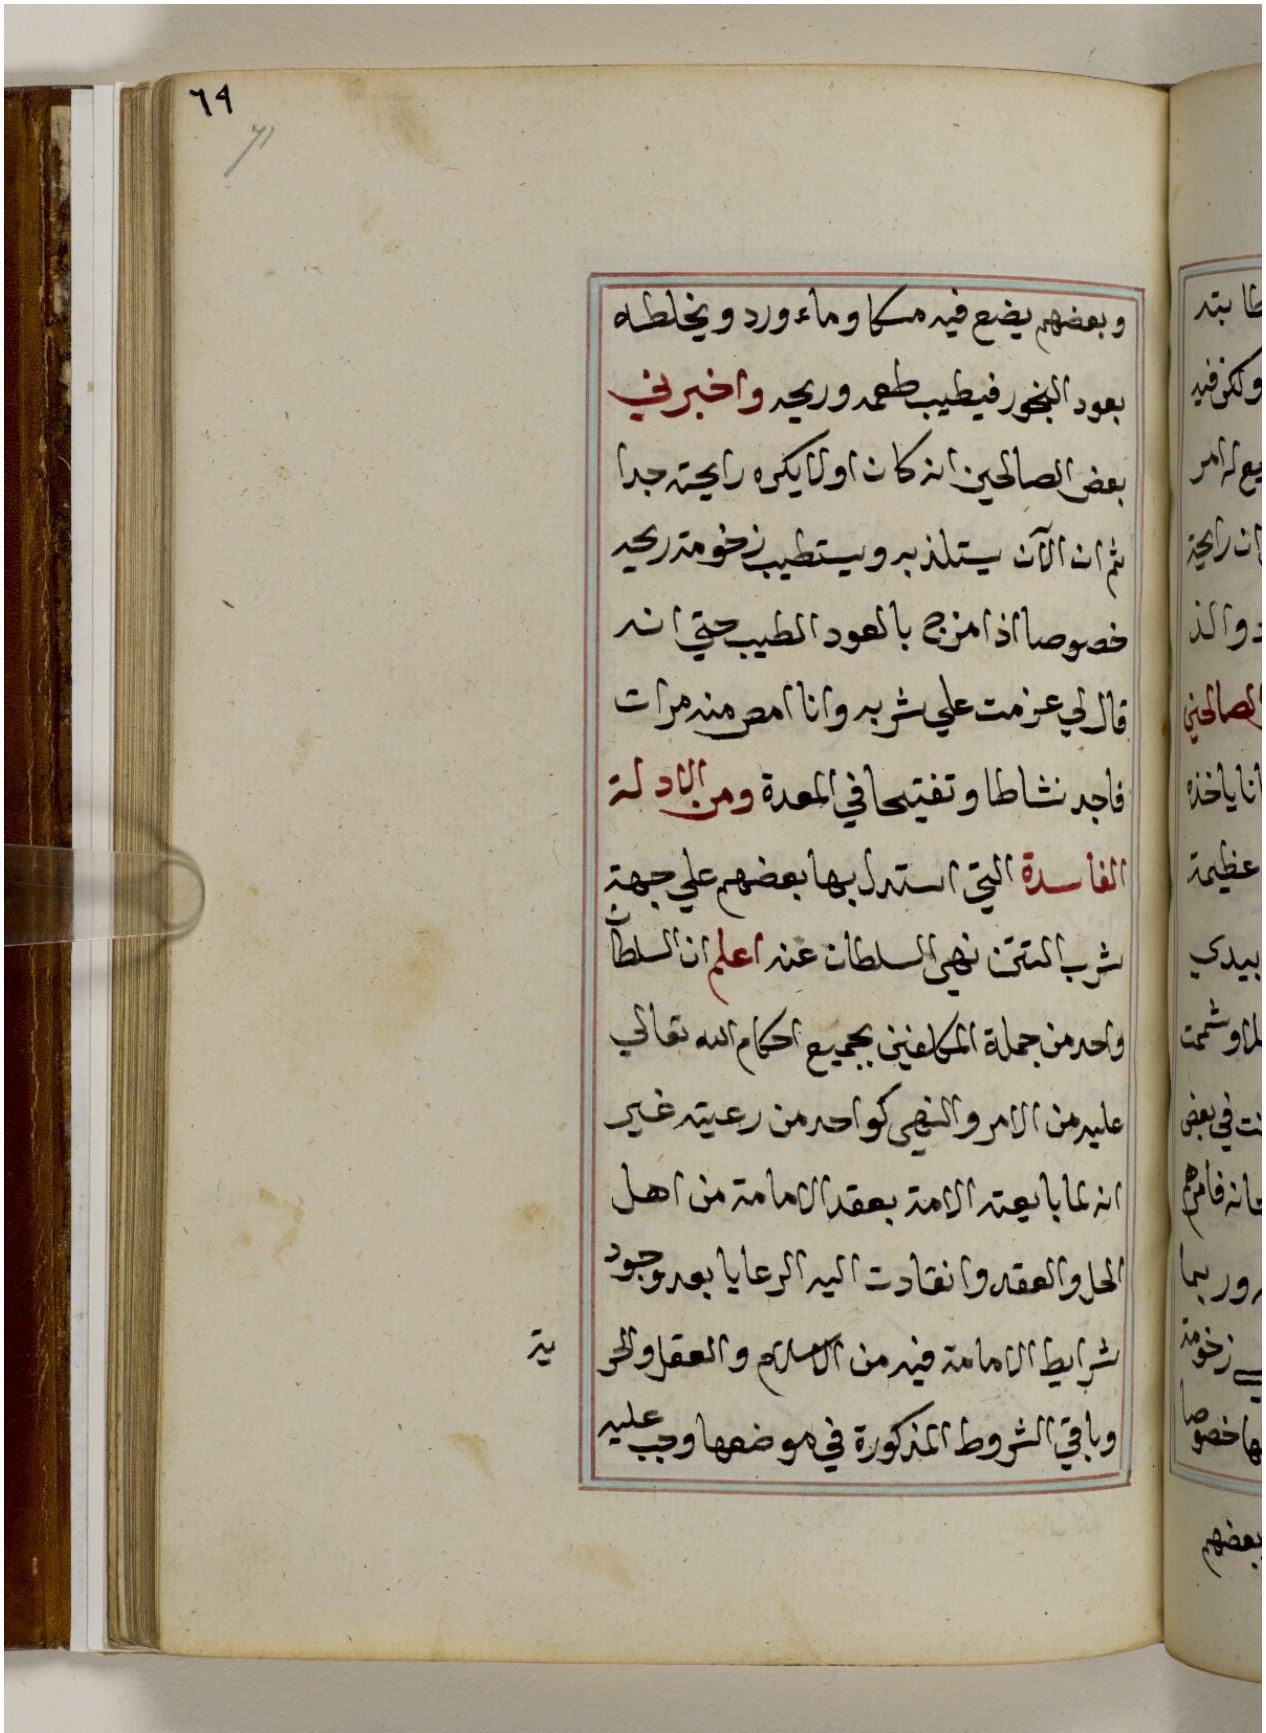 ٦٩
71
وبعضهم يضع فيه مسكا وماء ورد ويخلطه
بعود البخور فيطيب طعمه وريحه واخبرني
بعض الصالحين انه كان اولا يكره رايحته جدا
ثم ان الآن يستلذ به ويستطيب زخومة ريحه
خصوصا اذا مزج بالعود الطيب حتي انه
قال لي عزمت علي شربه وانا امص منه مرات
فاجد نشاطا وتفتيحا في المعدة ومن الادلة
الفاسدة التي استدل بها بعضهم علي جهة
شرب التتن نهي السلطان عنه اعلم ان السلطان
واحد من جملة المكلفين بجميع احكام الله تعالي
عليه من الامر والنهي كواحد من رعيته غير
انه لما بايعته الامة بعقد الامامة من اهل
الحل والعقد وانقادت اليه الرعايا بعد وجود
شرايط الامامة فيه من الاسلام والعقل والحر
ية
وباقي الشروط المذكورة في موضعها وجب عليه
طا بته
ولكن فيه
يع له امر
ان رايحة
د والذ
الصالحين
انا ياخذه
عظيمة
بيدي
وشممت
نت في بعض
فامرهم
وربما
زخومة
ها خصوصا
بعضهم